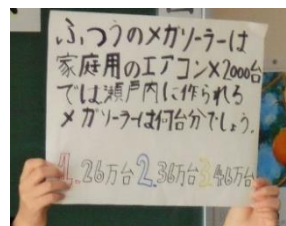 ふつうのメガソーラーは
家庭用のエアコン×2000台
では瀬戸内に作られる
メガソーラーは何台分でしょう。
1.26万台 2.36万台 3.46万台